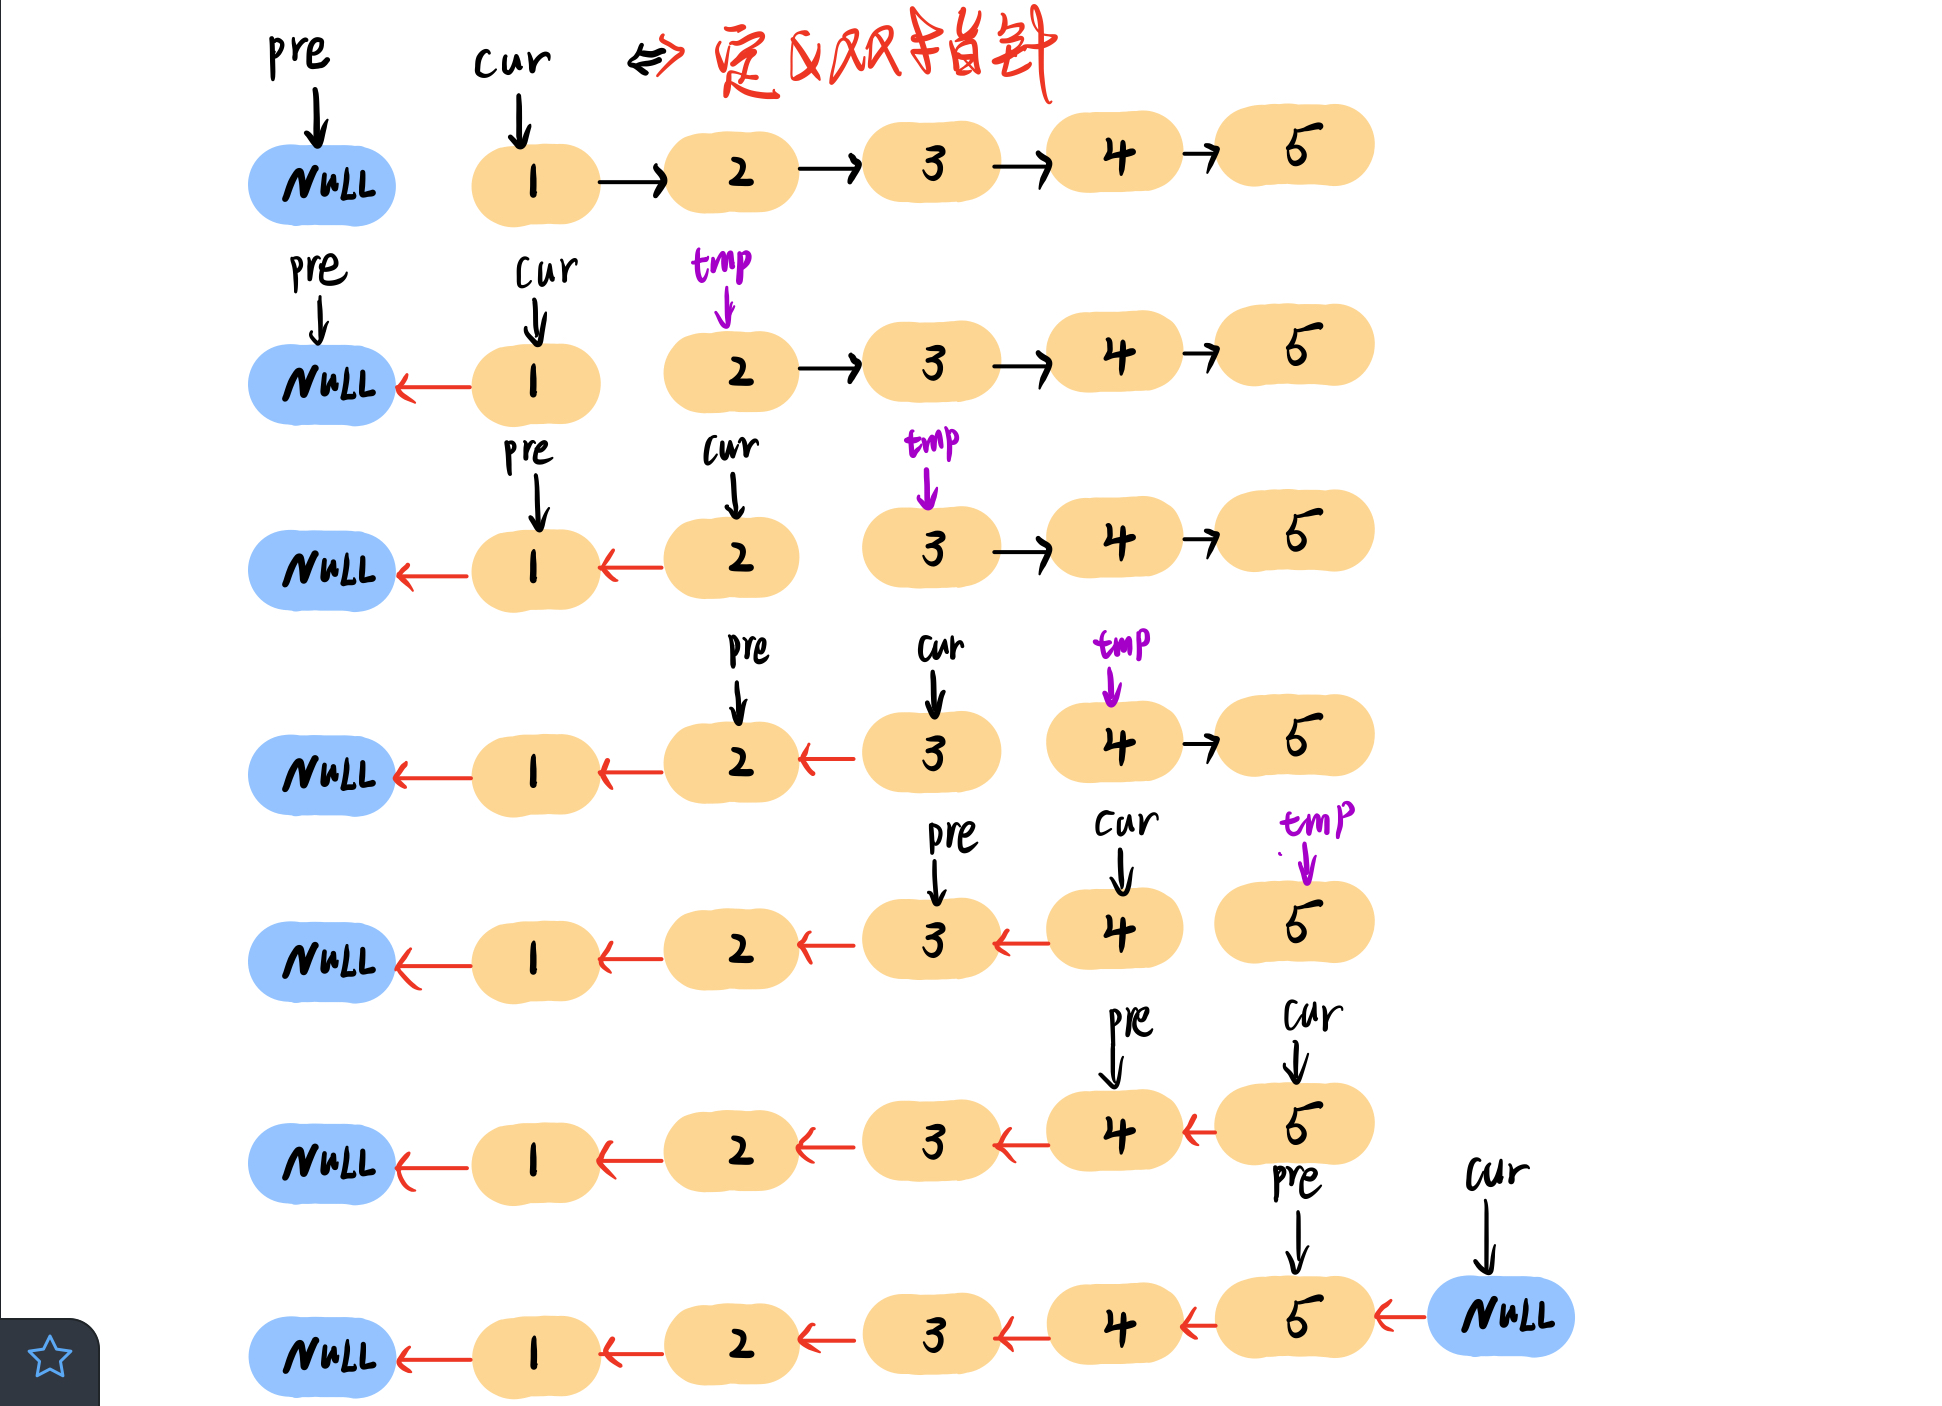 pre cur ⇔ 定义双指针
NULL 1 2 3 4 5
pre cur tmp
NULL 1 2 3 4 5
pre cur tmp
NULL 1 2 3 4 5
pre cur tmp
NULL 1 2 3 4 5
pre cur tmp
NULL 1 2 3 4 5
pre cur
NULL 1 2 3 4 5
pre cur
NULL 1 2 3 4 5 NULL